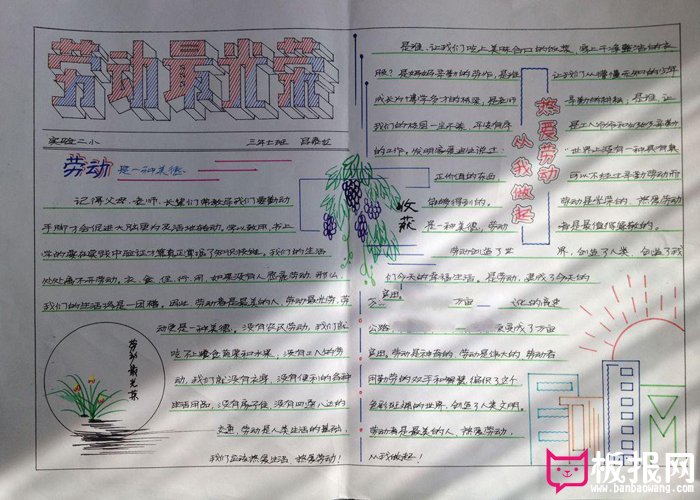 劳动最光荣
实验二小 三年七班
劳动 是一种美德
记得父母、老师、长辈们常教导我们要勤动
手脚才会促进大脑更为灵活地转动,学以致用,书上
学的要在实践中验证才算真正掌握了知识技能。我们的生活
处处离不开劳动。衣、食、住、行、用,如果没有人愿意劳动,那么
我们的生活将是一团糟。因此,劳动者是最美的人,劳动最光荣,劳
动更是一种美德。没有农民劳动,我们就
吃不上粮食蔬菜和水果,没有工人的劳
动,我们就没有衣穿,没有便利的各种
生活用品,没有房子住,没有四通八达的
交通,劳动是人类生活的基础,
我们应该热爱生活,热爱劳动!
劳动最光荣
收获
热爱劳动
从我做起
是谁,让我们吃上美味合口的饭菜,穿上干净整洁的衣
服?是妈妈辛勤的劳作,是谁 让我们从懵懂无知的少年
成长为博学多才的 是老师 是谁,让
我们的校园一尘不染,井然有序 是工人
的工作,发明家爱迪生说过: "世界上没有一种具有真
正价值的东西 可以不经过辛勤劳动而
能够得到的。 劳动是光荣的,热爱劳动
是一种美德,劳动 者是最值得尊敬的。
劳动创造了世 界,创造了人类,创造了我
们今天的幸福生活,是劳动,建成了今天的
万 万亩
公路, 变成了万亩
劳动是神奇的,劳动是伟大的,劳动者
用勤劳的双手和智慧,编织了这个
色彩斑斓的世界,创造了人类文明。
劳动者是最美的人、热爱劳动,
从我做起!
板报网
www.banbaowang.com